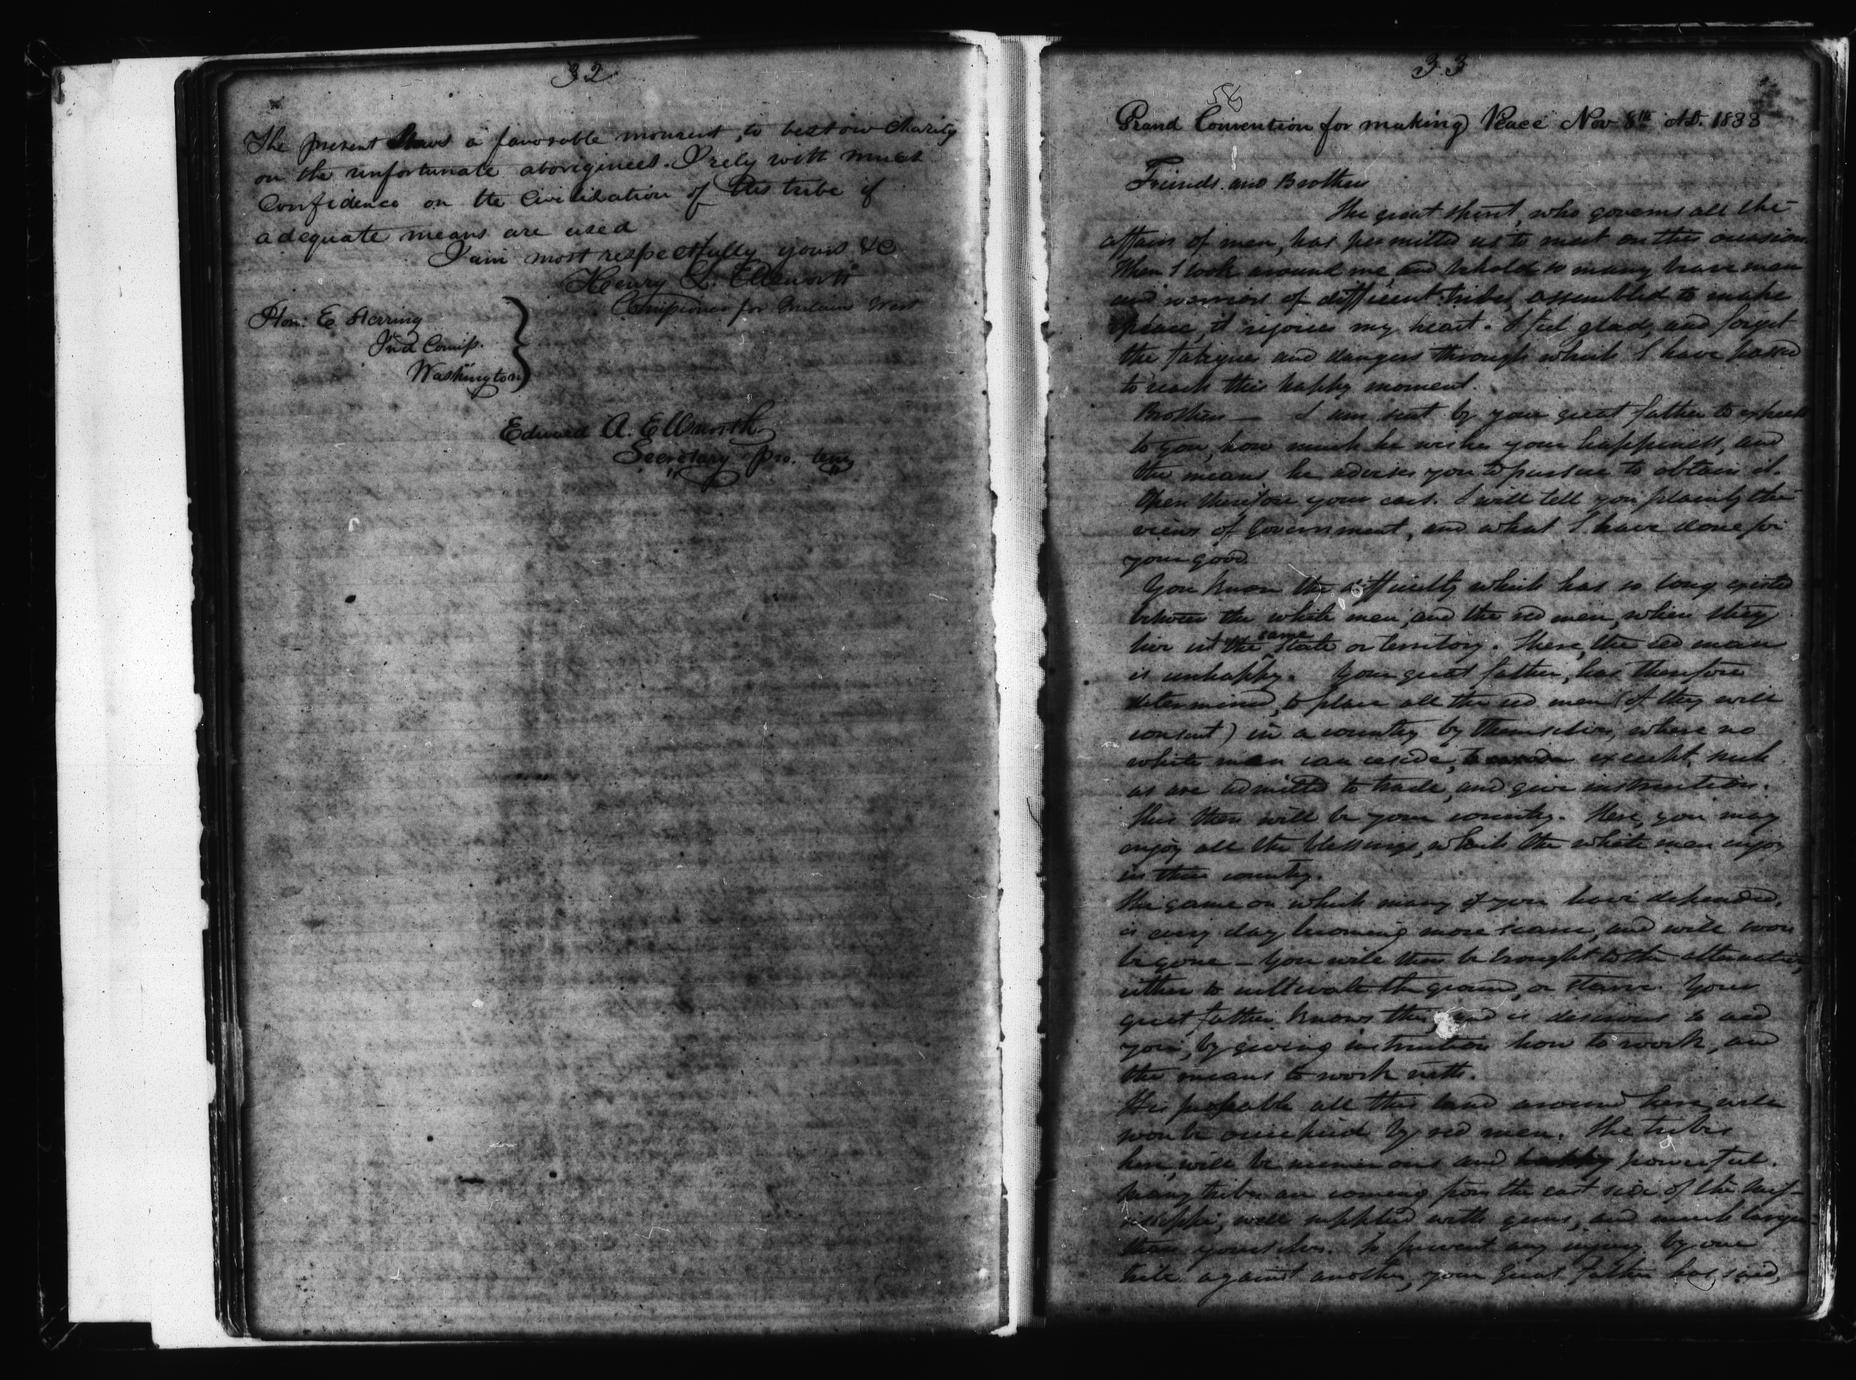 32
The present shows a favorable moment, to bestow charity
on the unfortunate aborigines. I rely with much
Confidence on the Civilization of this tribe if
adequate means are used
I am most respectfully yours &c
Henry L. Ellsworth
Commissioner for Indians West
Hon: E Herring
Ind Comiss.
Washington
Edward A. Ellsworth
Secretary pro. tem
33
56
Grand Convention for making Peace Nov 8th AD. 1833
Friends and Brothers
The great spirit, who governs all the
affairs of men, has permitted us to meet on this occasion.
When I look around me and behold so many brave men
and warriors of different tribes assembled to make
peace, it rejoices my heart. I feel glad, and forget
the fatigues and dangers through which I have passed
to reach this happy moment.
Brothers — I am sent by your great father to express
to you, how much he wishes your happiness, and
the means he advises you to pursue to obtain it.
Open therefore your ears. I will tell you plainly the
views of Government, and what I have done for
your good.
You know the difficulty which has so long existed
between the white men, and the red men, when they
live in the same State or territory. There, the red man
is unhappy. Your great father, has therefore
determined, to place all the red men (if they will
consent) in a country by themselves, where no
white man can reside, except such
as are admitted to trade, and give instruction.
This then will be your country. Here, you may
enjoy all the blessings, which the white men enjoy
in their country.
The game on which many of you have depended,
is every day becoming more scarce, and will soon
be gone — You will then be brought to the alternative,
either to cultivate the ground, or starve. Your
great father knows this, and is desirous to aid
you, by giving instruction how to work, and
the means to work with.
It is probable all the land around here will
soon be occupied by red men. The tribes
here, will be numerous and happy powerful.
Many tribes are coming from the east side of the Mis-
sissippi, well supplied with guns, and much larger
than yourselves. To prevent any injury by one
tribe against another, your great father has said,